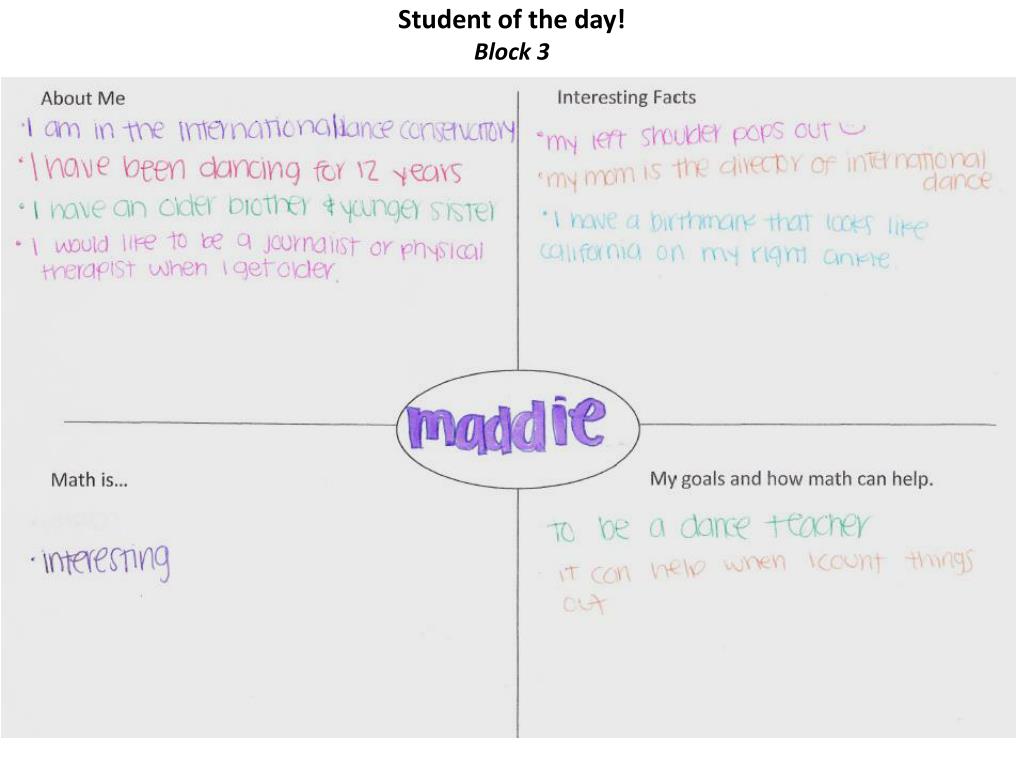 Student of the day!
Block 3
About Me
·I am in the international dance conservatory
·I have been dancing for 12 years
·I have an older brother & younger sister
·I would like to be a journalist or physical
therapist when I get older.
Interesting Facts
·my left shoulder pops out
·my mom is the director of international
dance
·I have a birthmark that looks like
california on my right ankle.
maddie
Math is...
·interesting
My goals and how math can help.
To be a dance teacher
it can help when I count things
out